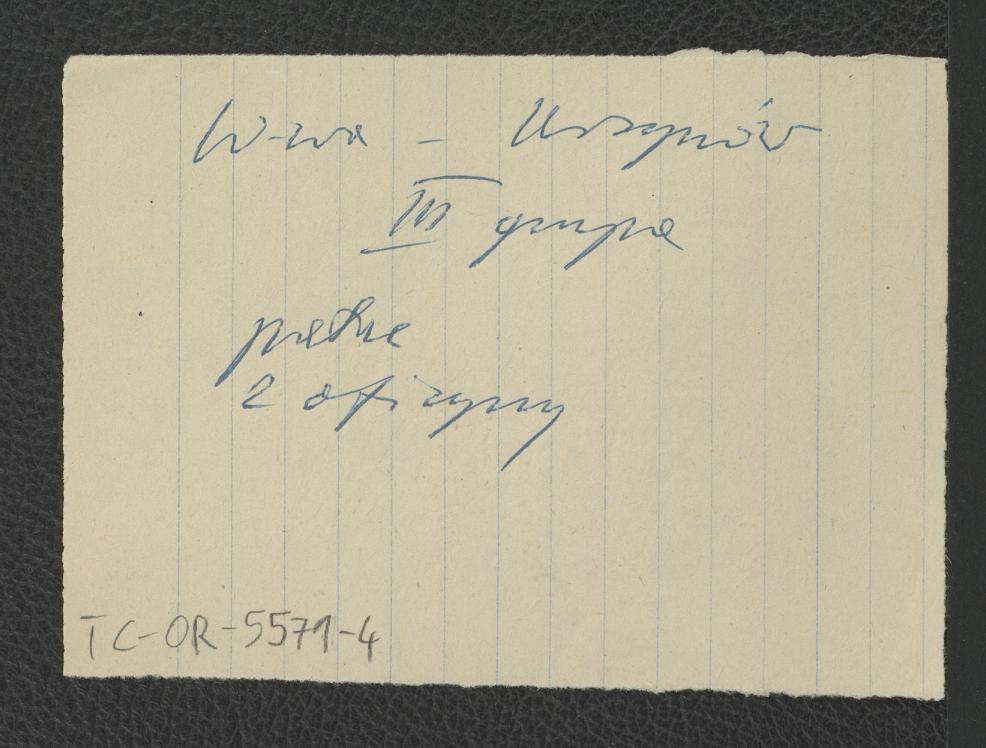 W-wa – Ursynów
III grupa
pałac
2 oficyny
TC-OR-5571-4